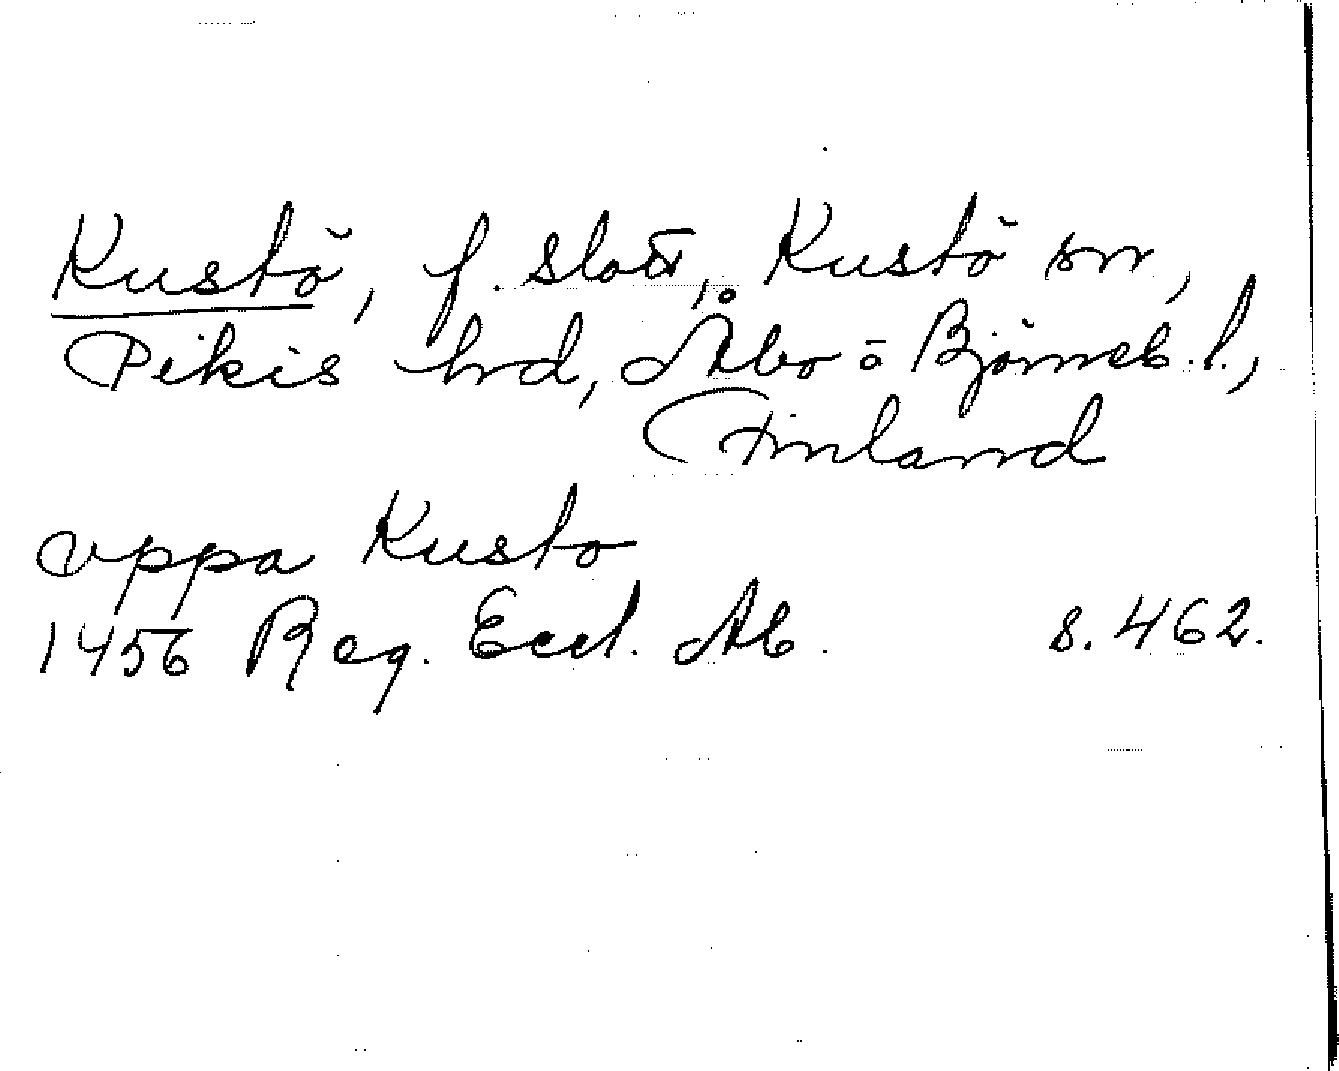 Kustö, f. slott, Kustö sn,
Pikis hrd, Åbo o Björneb. l.,
Finland
vppa Kusto
1456 Reg. Eccl. Ab. s. 462.